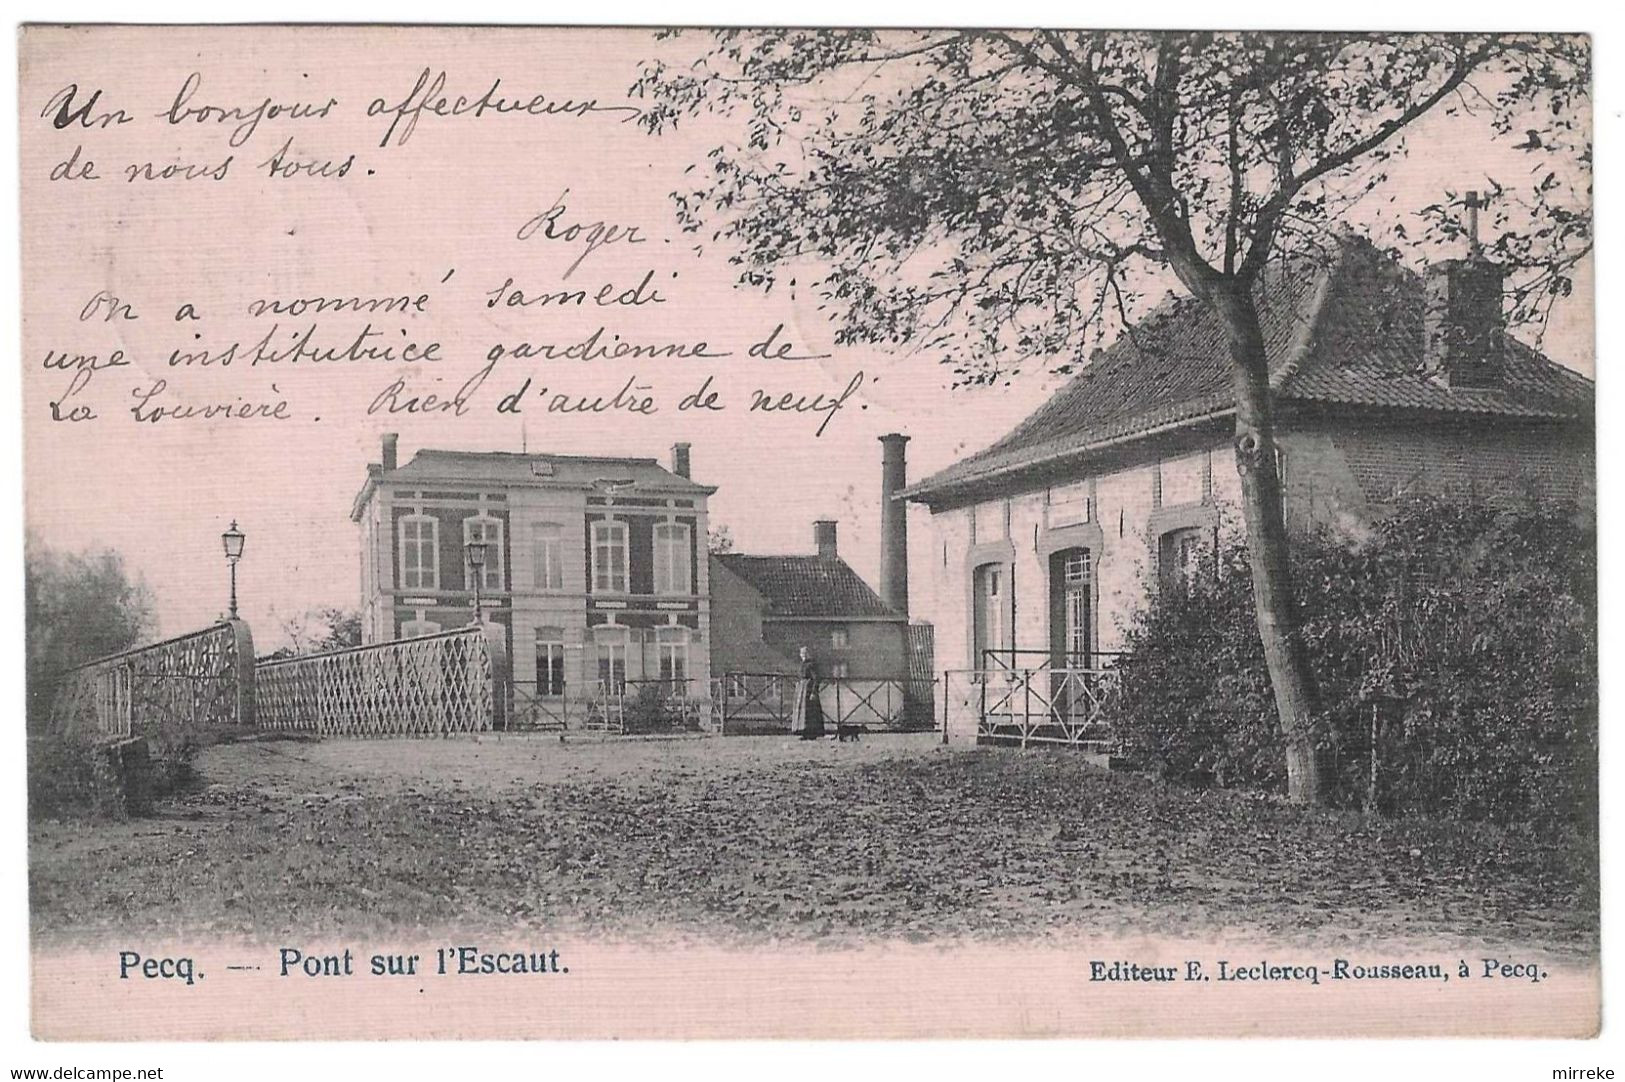 Un bonjour affectueux
de nous tous.
Roger.
On a nommé samedi
une institutrice gardienne de
La Louvière. Rien d'autre de neuf.
Pecq. — Pont sur l'Escaut.
Editeur E. Leclercq-Rousseau, à Pecq.
delcampe.net
mirreke